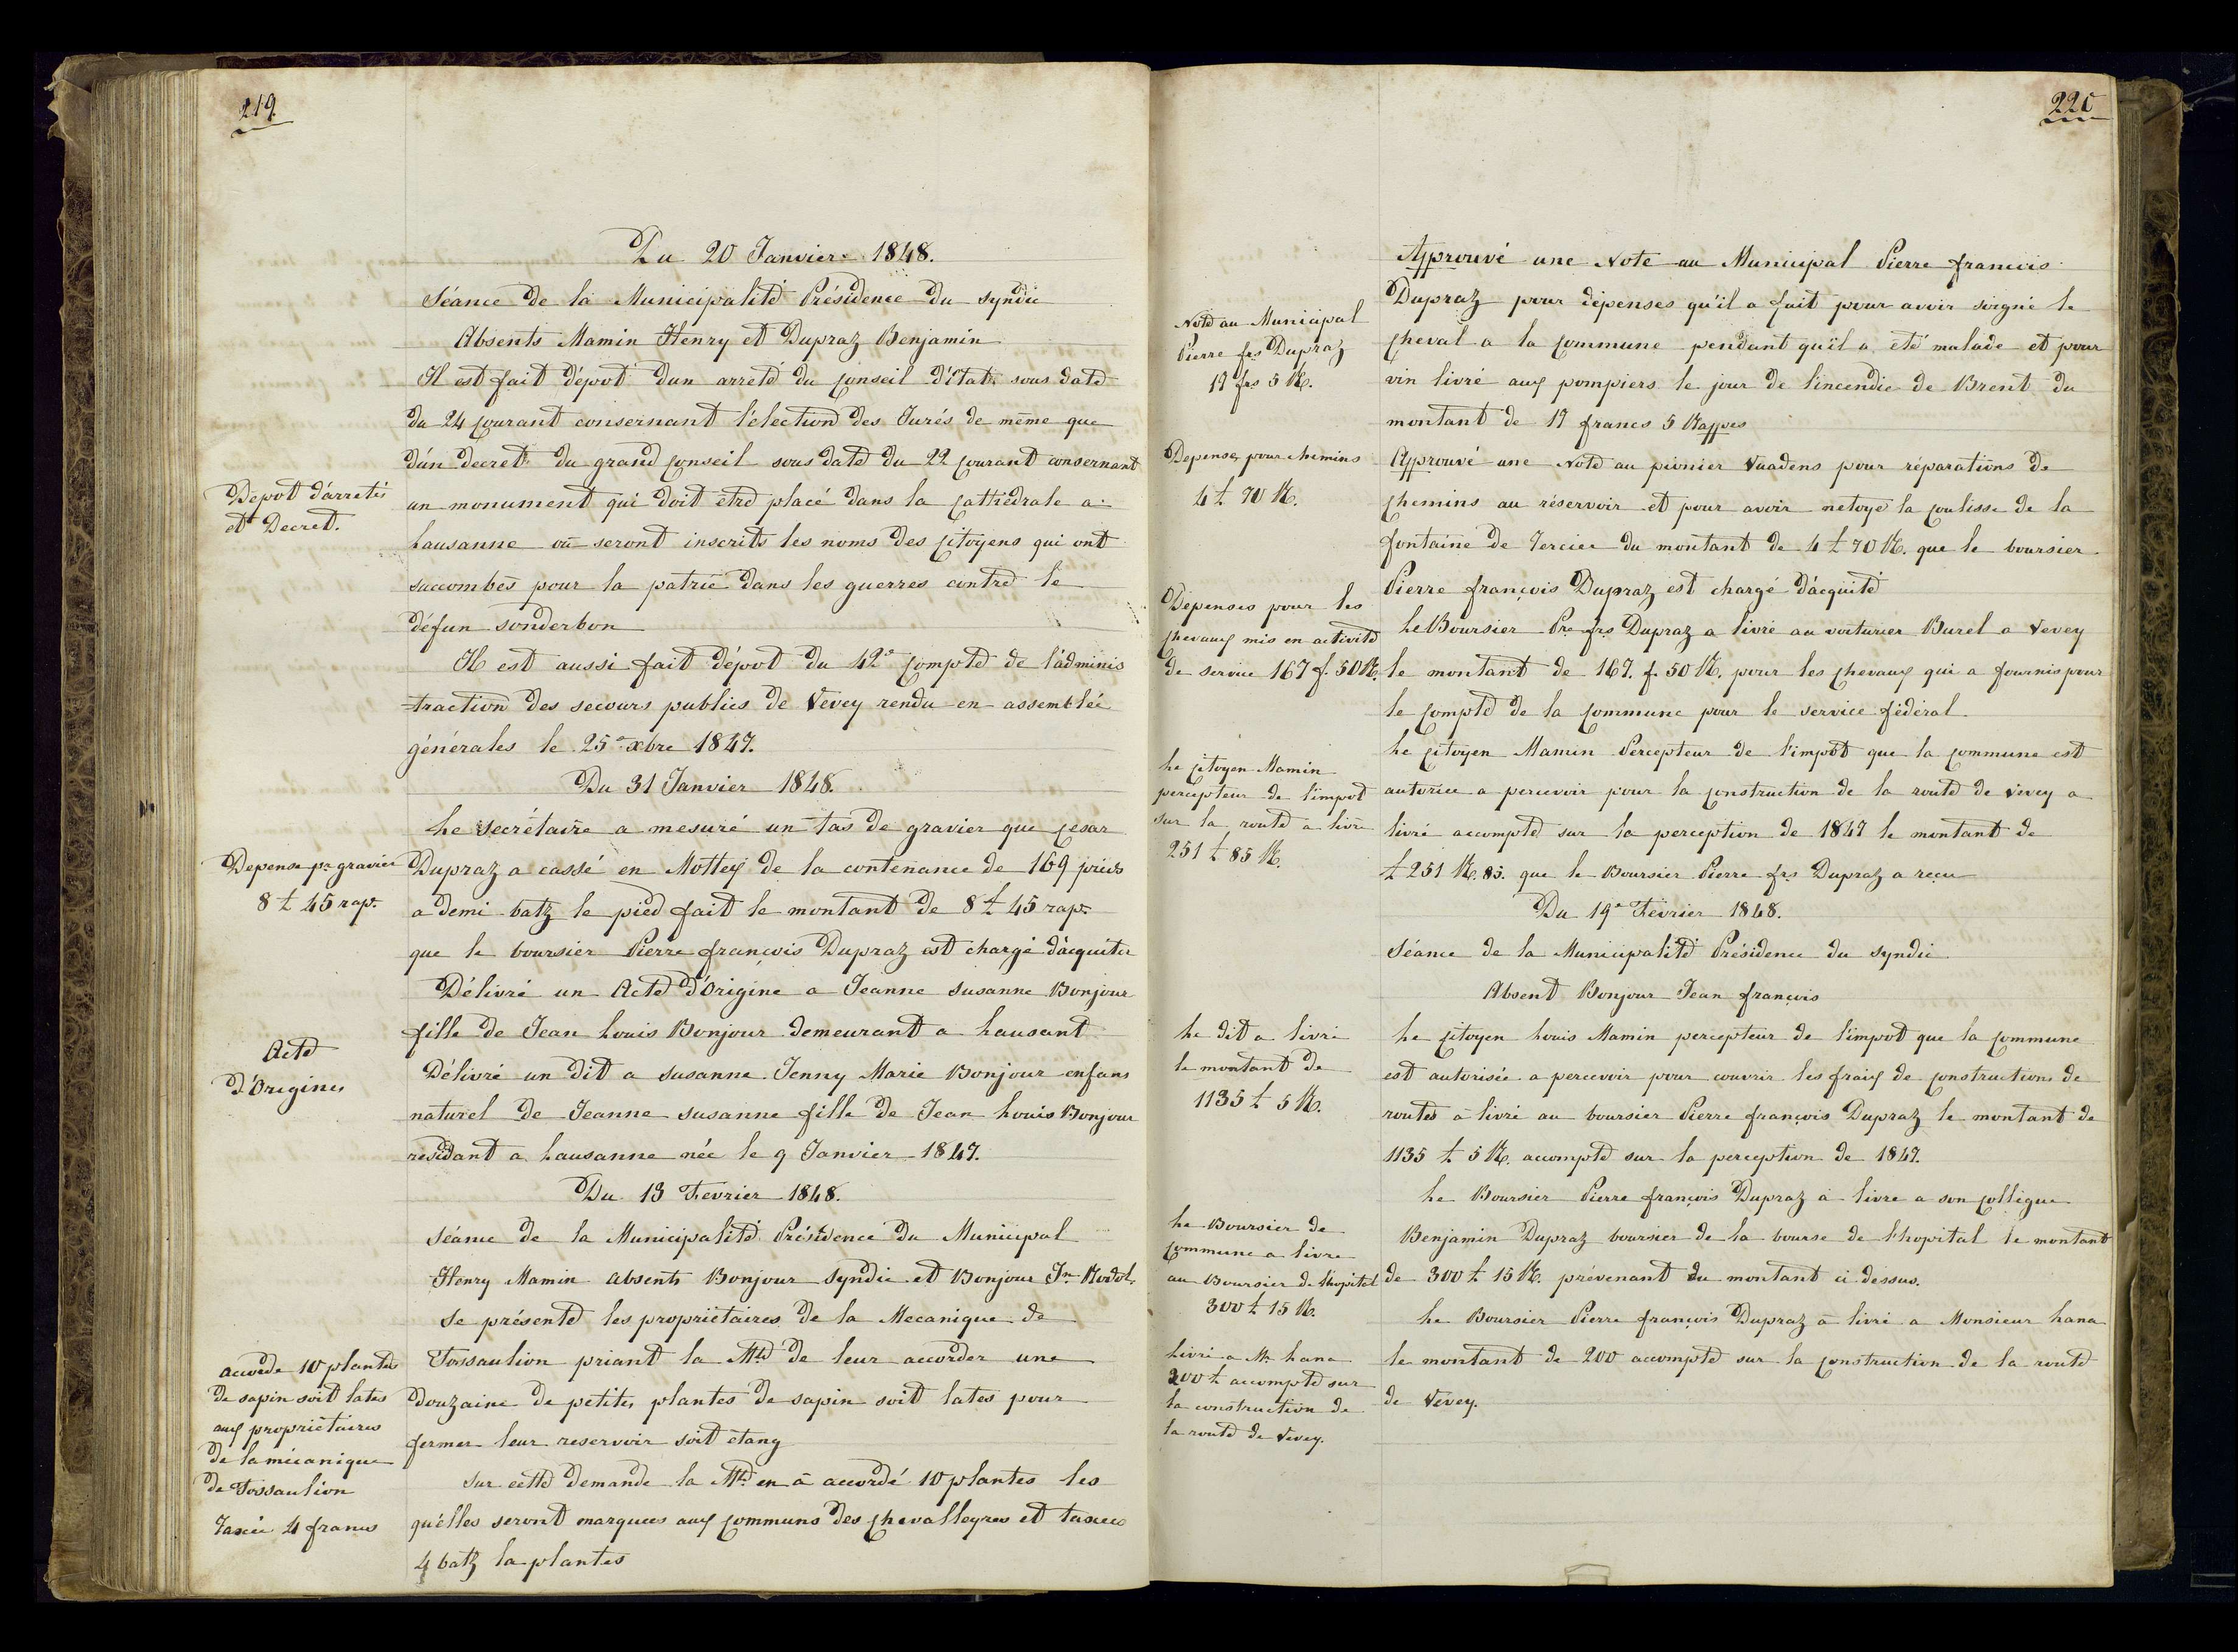 219.
Du 20 Janvier 1848.
Séance de la Municipalité Présidence du Syndic
Absents Mamin Henry et Dupraz Benjamin
Il est fait dépot d'un arreté du Conseil d'Etat sous date
du 24 courant consernant l'élection des Jurés de même que
d'un decret du grand Conseil sous date du 22 courant consernant
Depot d'arretés
et Decret.
un monument qui doit être placé dans la Cathédrale a
Lausanne ou seront inscrits les noms des Citoyens qui ont
succombés pour la patrie dans les guerres contre le
défun sonderbon
Il est aussi fait dépot du 42e Compte de l'adminis
traction des secours publics de Vevey rendu en assemblée
générales le 25e xbre 1847.
Du 31 Janvier 1848.
Le Secrétaire a mesuré un tas de gravier que Cesar
Depense pr gravier
8 £ 45 rap.
Dupraz a cassé en Mottey de la contenance de 169 pieds
a demi batz le pied fait le montant de 8 £ 45 rap.
que le boursier Pierre françois Dupraz est chargé d'acquiter
Délivré un Acte d'Origine a Jeanne Susanne Bonjour
fille de Jean Louis Bonjour demeurant a Lausant
Acte
d'Origines
Délivré un dit a Susanne Jenny Marie Bonjour enfans
naturel de Jeanne Susanne fille de Jean Louis Bonjour
residant a Lausanne née le 9 Janvier 1847.
Du 13 Fevrier 1848.
Séance de la Municipalité Présidence du Municipal
Henry Mamin absents Bonjour Syndic et Bonjour Jn Rodol.
Se présente les propriétaires de la Mecanique de
accordé 10 plantes
de sapin soit lates
aux propriétaires
de la mécanique
de Tossaulion
Taxée 4 francs
Tossaulion priant la Mté de leur accorder une
douzaine de petites plantes de sapin soit lates pour
fermer leur reservoir soit étang
Sur cette demande la Mté en a accordé 10 plantes les
qu'elles seront marquees aux communs des Chevalleyres et taxees
4 batz la plantes
220
Approuvé une Note au Municipal Pierre francois
Note au Municipal
Pierre frs Dupraz
19 frs 5 R.
Dupraz pour dépenses qu'il a fait pour avoir soigné le
cheval a la Commune pendant qu'il a été malade et pour
vin livré aux pompiers le jour de l'incendie de Brent du
montant de 19 francs 5 Rappes
Depenses pour chemins
4 £ 70 R.
Approuvé une Note au pionier Vuadens pour réparations de
Chemins au réservoir et pour avoir netoyé la coulisse de la
fontaine de Tercier du montant de 4 £ 70 R. que le boursier
Pierre françois Dupraz est chargé d'acquité
Dépenses pour les
chevaux mis en activité
de service 167 f. 50 R.
Le Boursier Pre frs Dupraz a livré au voiturier Burel a Vevey
le montant de 167. f. 50 R. pour les chevaux qui a fournis pour
le compte de la Commune pour le service fédéral
Le Citoyen Mamin
percepteur de l'impot
sur la route a livré
251 £ 85 R.
Le Citoyen Mamin Percepteur de l'impôt que la commune est
autorice a percevoir pour la Construction de la route de Vevey a
livré accompte sur la perception de 1847 le montant de
£ 251 R. 85. que le Boursier Pierre frs Dupraz a reçu
Du 19e Février 1848.
Séance de la Municipalité Présidence du Syndic
Absent Bonjour Jean francois
Le dit a livré
le montant de
1135 £ 5 R.
Le Citoyen Louis Mamin percepteur de l'impot que la Commune
est autorisée a percevoir pour couvrir les fraix de constructions de
routes à livré au boursier Pierre françois Dupraz le montant de
1135 £ 5 R. accompte sur la perception de 1847.
Le Boursier Pierre françois Dupraz à livre a son Collègue
Le Boursier de
Commune a livre
au Boursier de l'hopital
300 £ 15 R.
Benjamin Dupraz boursier de la bourse de l'hopital le montant
de 300 £ 15 R. prévenant du montant ci dessus.
Le Boursier Pierre françois Dupraz à livré a Monsieur Lana
Livré a Mr Lana
200 £ accompte sur
la construction de
la route de Vevey.
le montant de 200 accompte sur la Construction de la route
de Vevey.